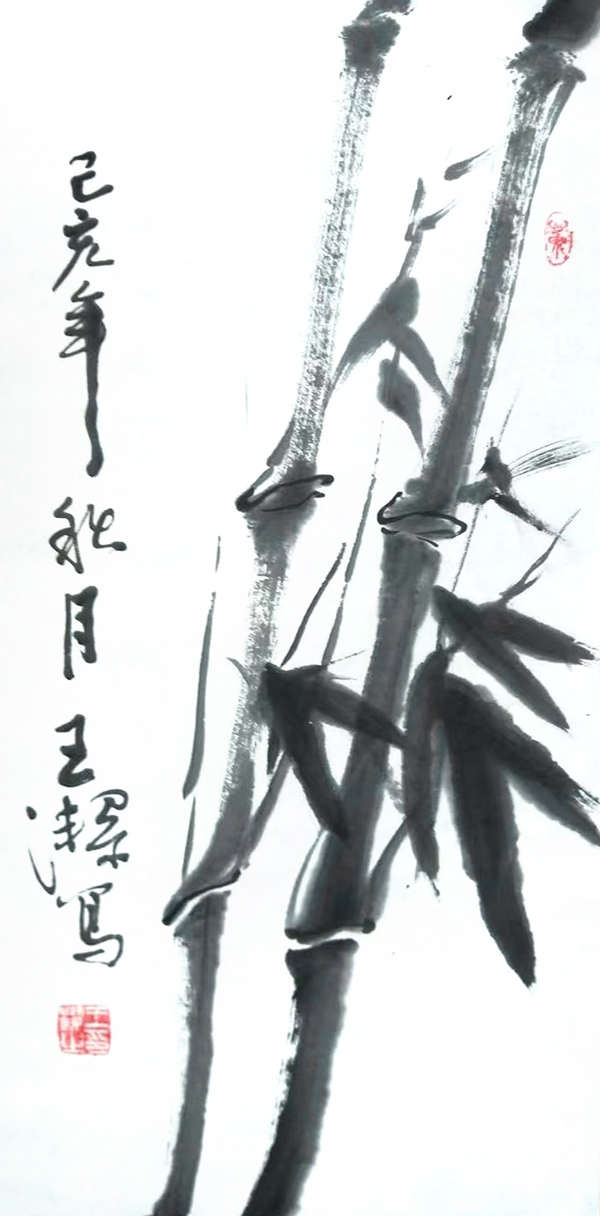 己亥年秋月王潔寫